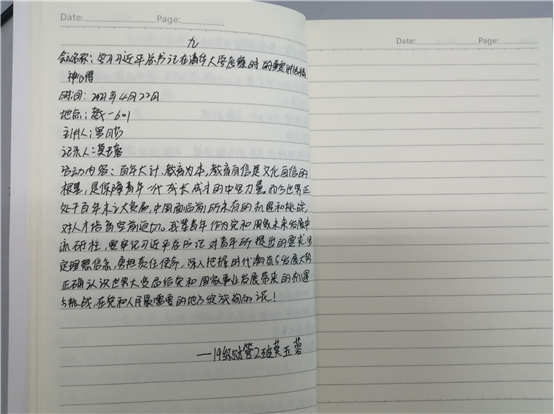 Date: Page:
九
会议名称：学习习近平总书记在清华大学考察时的重要讲话精
神心得
时间：2021年4月22日
地点：教一601
主持人：罗
记录人：莫玉蓉
活动内容：百年大计、教育为本，教育自信是文化自信的
根基，是保障青年一代成长成才的中坚力量。而今世界正
处于百年未之大变局，中国面临前所未有的机遇和挑战，
对人才培育空前迫切。我辈青年作为党和国家未来发展中
流砥柱，要牢记习近平总书记对青年所提出的要求，坚
定理想信念，勇担责任使命，深入把握时代潮流与发展大势
正确认识世界大变局给党和国家事业发展带来的机遇
与挑战，在党和人民最需要的地方绽放绚丽的花！
——19级财管2班莫玉蓉
Date: Page: